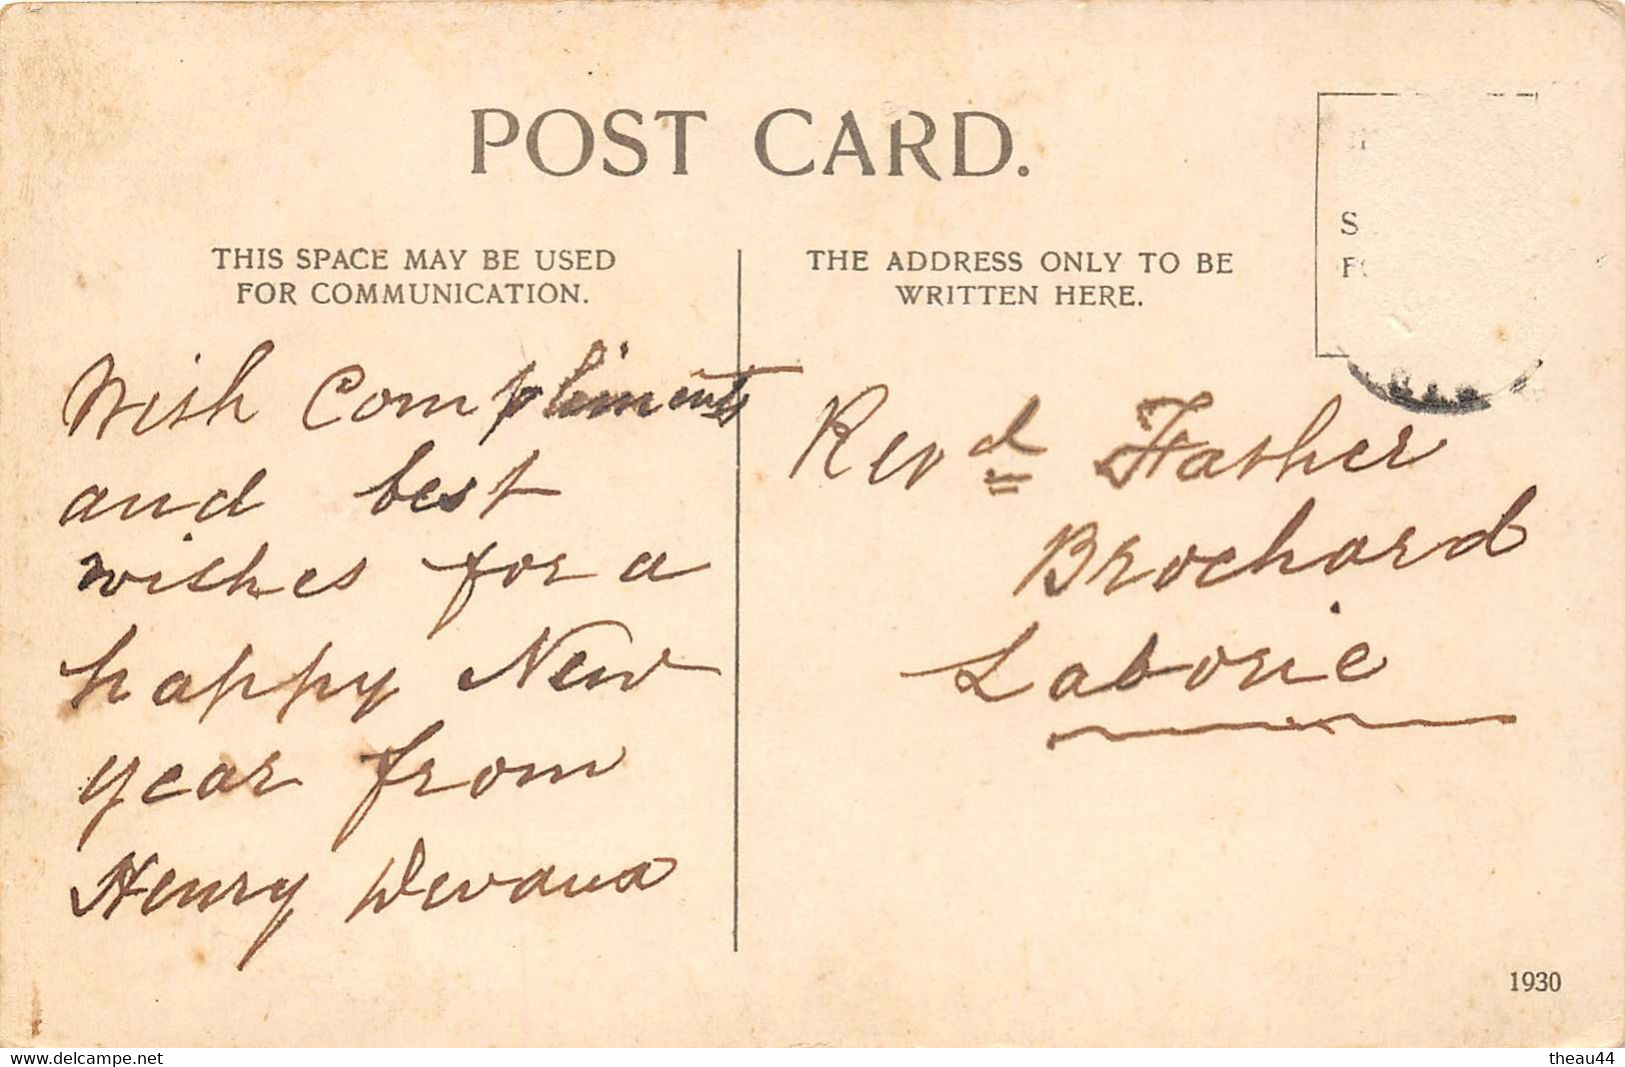 POST CARD.
THIS SPACE MAY BE USED
FOR COMMUNICATION.
THE ADDRESS ONLY TO BE
WRITTEN HERE.
With Compliments
and best
wishes for a
happy New
year from
Henry Devaux
Rev d Father
Brochard
Laborie
1930
www.delcampe.net
theau44